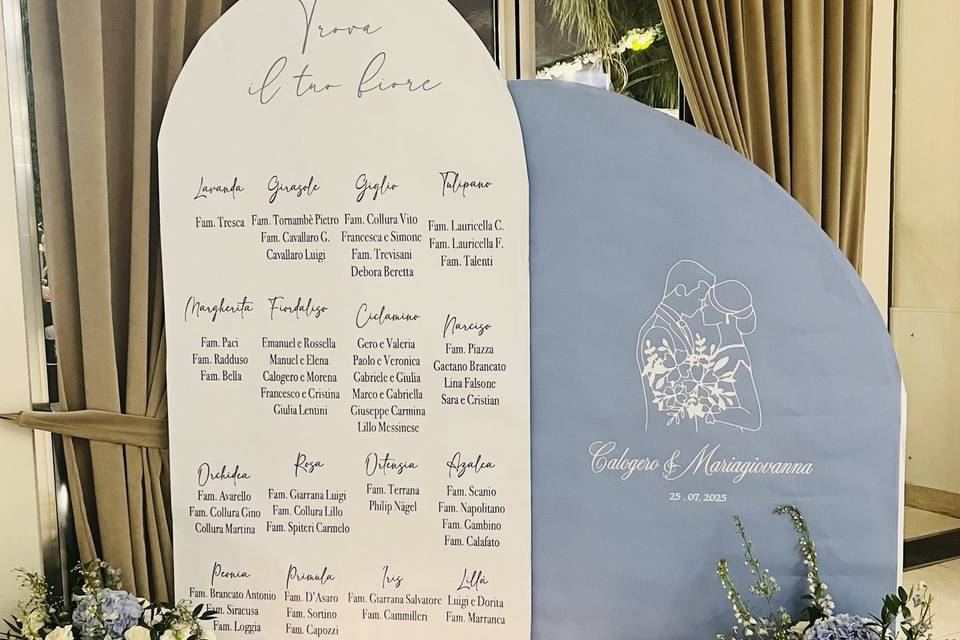 Trova
il tuo fiore
Lavanda
Fam. Tresca
Girasole
Fam. Tornambè Pietro
Fam. Cavallaro G.
Cavallaro Luigi
Giglio
Fam. Collura Vito
Francesca e Simone
Fam. Trevisani
Debora Beretta
Tulipano
Fam. Lauricella C.
Fam. Lauricella F.
Fam. Talenti
Margherita
Fam. Paci
Fam. Radduso
Fam. Bella
Fiordaliso
Emanuel e Rossella
Manuel e Elena
Calogero e Morena
Francesco e Cristina
Giulia Lentini
Ciclamino
Gero e Valeria
Paolo e Veronica
Gabriele e Giulia
Marco e Gabriella
Giuseppe Carmina
Lillo Messinese
Narciso
Fam. Piazza
Gaetano Brancato
Lina Falsone
Sara e Cristian
Orchidea
Fam. Avarello
Fam. Collura Gino
Collura Martina
Rosa
Fam. Giarrana Luigi
Fam. Collura Lillo
Fam. Spiteri Carmelo
Ortensia
Fam. Terrana
Philip Nägel
Azalea
Fam. Scanio
Fam. Napolitano
Fam. Gambino
Fam. Calafato
Peonia
Fam. Brancato Antonio
Fam. Siracusa
Fam. Loggia
Primula
Fam. D'Asaro
Fam. Sortino
Fam. Capozzi
Iris
Fam. Giarrana Salvatore
Fam. Cammilleri
Lillá
Luigi e Dorita
Fam. Marranca
Calogero & Mariagiovanna
25 . 07. 2025